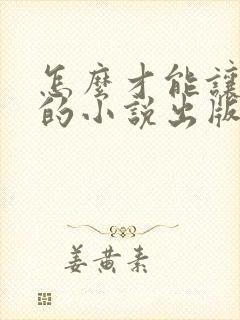 怎麼才能讓
的小說出版
姜黃素